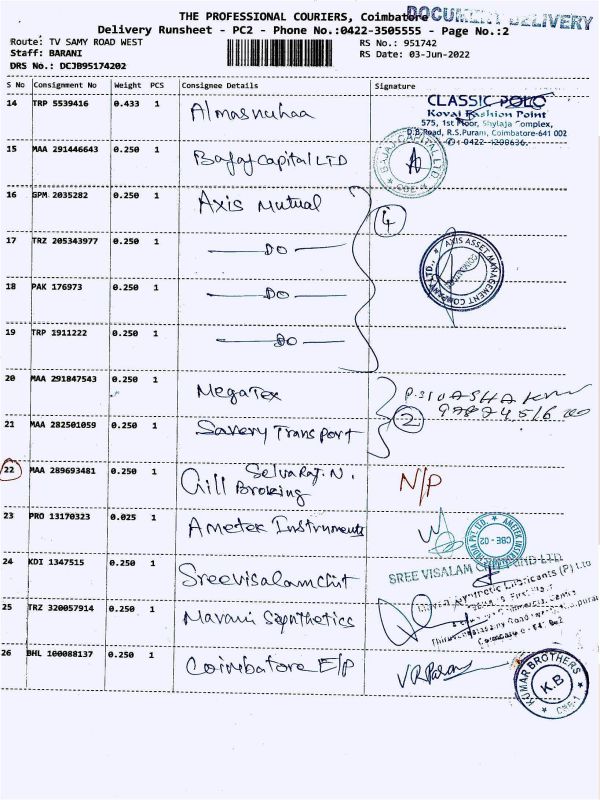 THE PROFESSIONAL COURIERS, Coimbatore
DOCUMENT DELIVERY
Delivery Runsheet - PC2 - Phone No.:0422-3505555 - Page No.:2
Route: TV SAMY ROAD WEST RS No.: 951742
Staff: BARANI RS Date: 03-Jun-2022
DRS No.: DCJB95174202
S No Consignment No Weight PCS Consignee Details Signature
14 TRP 5539416 0.433 1 Almasnuhaa
CLASSIC POLO
Kovai Fashion Point
575, 1st Floor, Shylaja Complex,
D.B.Road, R.S.Puram, Coimbatore-641 002
15 MAA 291446643 0.250 1 Bajaj Capital LTD
BAJAJ CAPITAL LTD.
16 GPM 2035282 0.250 1 Axis Mutual
4
17 TRZ 205343977 0.250 1 DO
AXIS ASSET MANAGEMENT COMPANY LTD.
18 PAK 176973 0.250 1 DO
19 TRP 1911222 0.250 1 DO
20 MAA 291847543 0.250 1 MegaTex
21 MAA 282501059 0.250 1 Savery Transport
2
22 MAA 289693481 0.250 1 Selvaraj. N.
Gill Broking
N/P
23 PRO 13170323 0.025 1 Ametek Instruments
CBE - 02
24 KDI 1347515 0.250 1 Sreevisalam Chit
SREE VISALAM CHIT FUND LTD
25 TRZ 320057914 0.250 1 Mavani Synthetics
Synthetic Lubricants (P) Ltd
26 BHL 100088137 0.250 1 Coimbatore E/P
KUMAR BROTHERS
K.B
CBE-1